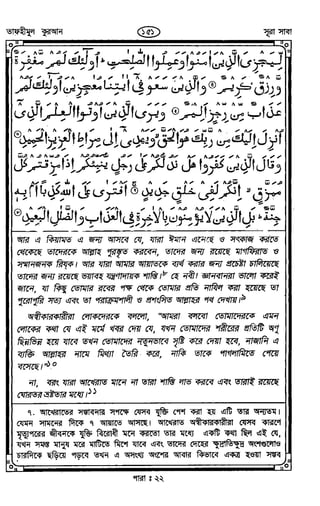 তাফহীমুল কুরআন
১৫১
সূরা সাবা
لِّيَجْزِىَ الَّذِيْنَ اٰمَنُوْا وَعَمِلُوا الصّٰلِحٰتِ ؕ اُولٰٓئِكَ لَهُمْ مَّغْفِرَةٌ
وَّرِزْقٌ كَرِيْمٌ ۞ وَالَّذِيْنَ سَعَوْ فِىْٓ اٰيٰتِنَا مُعٰجِزِيْنَ اُولٰٓئِكَ لَهُمْ
عَذَابٌ مِّنْ رِّجْزٍ اَلِيْمٌ ۞ وَيَرَى الَّذِيْنَ اُوْتُوا الْعِلْمَ الَّذِىْٓ
اُنْزِلَ اِلَيْكَ مِنْ رَّبِّكَ هُوَ الْحَقَّ ۙ وَيَهْدِىْٓ اِلٰى صِرَاطِ الْعَزِيْزِ الْحَمِيْدِ ۞
وَقَالَ الَّذِيْنَ كَفَرُوْا هَلْ نَدُلُّكُمْ عَلٰى رَجُلٍ يُّنَبِّئُكُمْ اِذَا مُزِّقْتُمْ كُلَّ
مُمَزَّقٍ ۙ اِنَّكُمْ لَفِىْ خَلْقٍ جَدِيْدٍ ۞ اَفْتَرٰى عَلَى اللّٰهِ كَذِبًا اَمْ بِهٖ
جِنَّةٌ ؕ بَلِ الَّذِيْنَ لَا يُؤْمِنُوْنَ بِالْاٰخِرَةِ فِى الْعَذَابِ وَالضَّلٰلِ الْبَعِيْدِ ۞
আর এ কিয়ামত এ জন্য আসবে যে, যারা ঈমান এনেছে ও সৎকাজ করতে
থেকেছে তাদেরকে আল্লাহ পুরস্কৃত করবেন, তাদের জন্য রয়েছে মাগফিরাত ও
সম্মানজনক রিযক। আর যারা আমার আয়াতকে ব্যর্থ করার জন্য প্রচেষ্টা চালিয়েছে
তাদের জন্য রয়েছে ভয়াবহ যন্ত্রণাদায়ক শাস্তি। হে নবী! জ্ঞানবানরা ভালো করেই
জানে, যা কিছু তোমার রবের পক্ষ থেকে তোমার প্রতি নাযিল করা হয়েছে তা
পুরোপুরি সত্য এবং তা পরাক্রমশালী ও প্রশংসিত আল্লাহর পথ দেখায়।
অস্বীকারকারীরা লোকদেরকে বলে, "আমরা বলবো তোমাদেরকে এমন
লোকের কথা যে এই মর্মে খবর দেয় যে, যখন তোমাদের শরীরের প্রতিটি অণু
ছিন্নভিন্ন হয়ে যাবে তখন তোমাদের নতুনভাবে সৃষ্টি করে দেয়া হবে, নাজানি এ
ব্যক্তি আল্লাহর নামে মিথ্যা তৈরি করে, নাকি তাকে পাগলামিতে পেয়ে
বসেছে।"১০
না, বরং যারা আখেরাত মানে না তারা শাস্তি লাভ করবে এবং তারাই রয়েছে
ঘোরতর ভ্রষ্টতার মধ্যে।১১
৭. আখেরাতের সম্ভাবনার সপক্ষে যেসব যুক্তি পেশ করা হয় এটি তার অন্যতম।
যেমন সামনের দিকে ৭ আয়াতে আসছে। আখেরাত অস্বীকারকারীরা যেসব কারণে
মৃত্যুপরের জীবনকে যুক্তি বিরোধী মনে করতো তার মধ্যে একটি কথা ছিল এই যে,
যখন সমস্ত মানুষ মরে মাটিতে মিশে যাবে এবং তাদের দেহের ক্ষুদ্রাতিক্ষুদ্র অংশগুলোও
চারদিকে ছড়িয়ে পড়বে তখন এ অসংখ্য অংশের আবার কিভাবে একত্র হওয়া সম্ভব
পারা : ২২